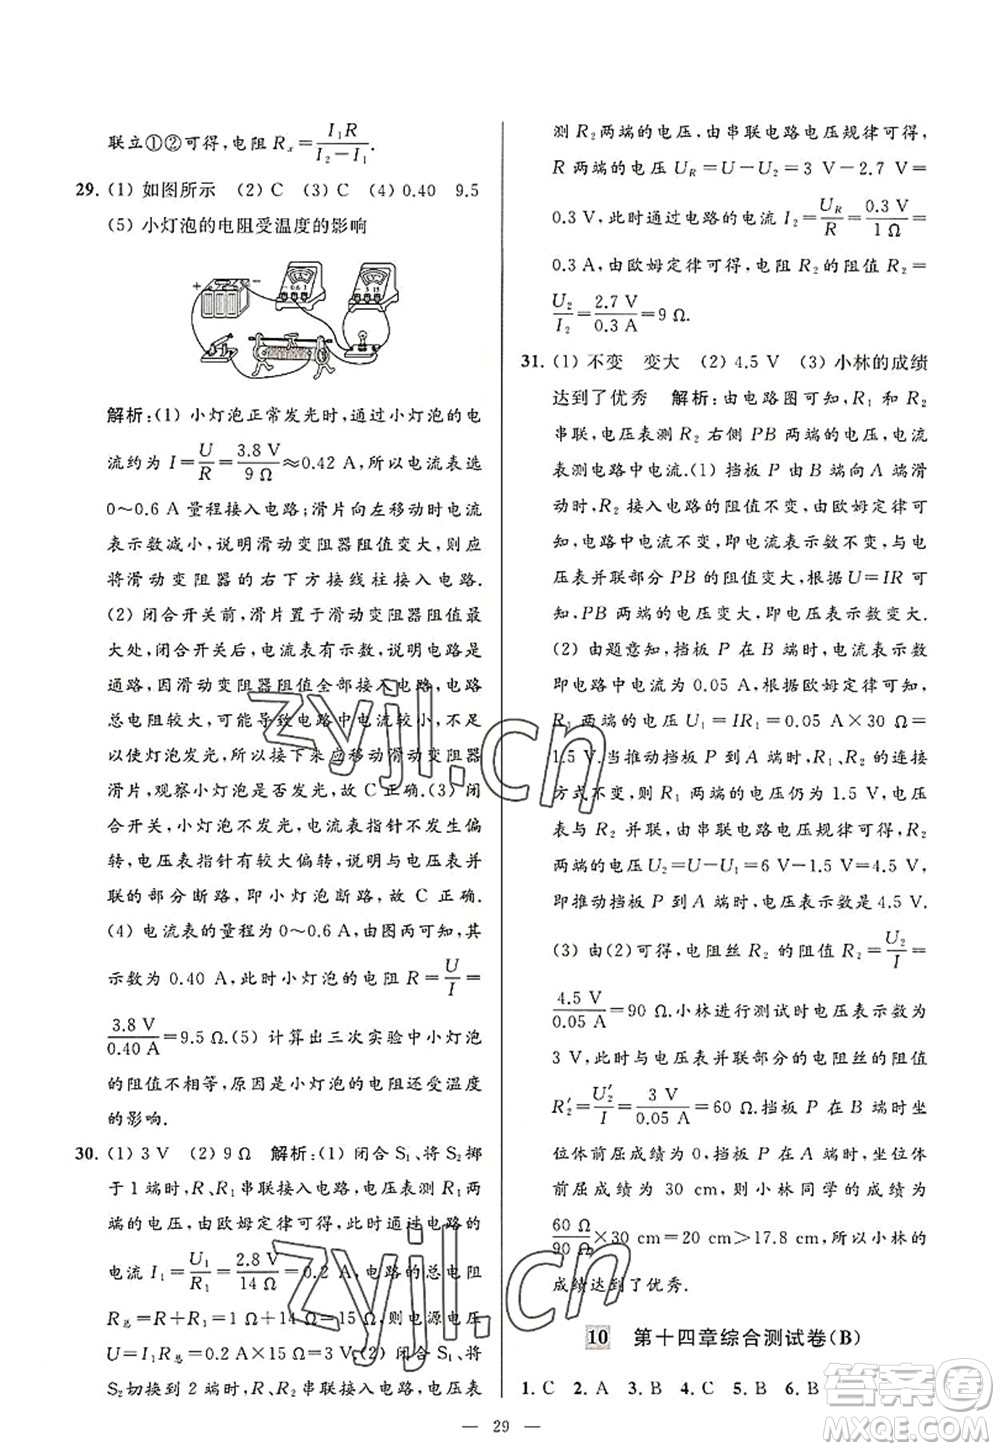 联立①②可得,电阻 Rₓ=I₁R/(I₂-I₁).
29. (1) 如图所示 (2) C (3) C (4) 0.40 9.5
(5) 小灯泡的电阻受温度的影响
解析:(1) 小灯泡正常发光时,通过小灯泡的电
流约为 I=U/R=3.8 V/9 Ω≈0.42 A,所以电流表选
0～0.6 A 量程接入电路;滑片向左移动时电流
表示数减小,说明滑动变阻器阻值变大,则应
将滑动变阻器的右下方接线柱接入电路.
(2) 闭合开关前,滑片置于滑动变阻器阻值最
大处,闭合开关后,电流表有示数,说明电路是
通路,因滑动变阻器阻值全部接入电路,电路
总电阻较大,可能导致电路中电流较小,不足
以使灯泡发光,所以接下来应移动滑动变阻器
滑片,观察小灯泡是否发光,故 C 正确.(3) 闭
合开关,小灯泡不发光,电流表指针几乎不偏
转,电压表指针有较大偏转,说明与电压表并
联的部分断路,即小灯泡断路,故 C 正确.
(4) 电流表的量程为 0～0.6 A,由图丙可知,其
示数为 0.40 A,此时小灯泡的电阻 R=U/I=
3.8 V/0.40 A=9.5 Ω.(5) 计算出三次实验中小灯泡
的阻值不相等,原因是小灯泡的电阻还受温度
的影响.
30. (1) 3 V (2) 9 Ω 解析:(1) 闭合 S₁、将 S₂ 掷
于 1 端时,R、R₁ 串联接入电路,电压表测 R₁ 两
端的电压,由欧姆定律可得,此时通过电路的
电流 I₁=U₁/R₁=2.8 V/14 Ω=0.2 A,电路的总电阻
R总=R+R₁=1 Ω+14 Ω=15 Ω,则电源电压
U=I₁R总=0.2 A×15 Ω=3 V.(2) 闭合 S₁、将
S₂ 切换到 2 端时,R、R₂ 串联接入电路,电压表
测 R₂ 两端的电压,由串联电路电压规律可得,
R 两端的电压 U_R=U-U₂=3 V-2.7 V=
0.3 V,此时通过电路的电流 I₂=U_R/R=0.3 V/1 Ω=
0.3 A,由欧姆定律可得,电阻 R₂ 的阻值 R₂=
U₂/I₂=2.7 V/0.3 A=9 Ω.
31. (1) 不变 变大 (2) 4.5 V (3) 小林的成绩
达到了优秀 解析:由电路图可知,R₁ 和 R₂
串联,电压表测 R₂ 右侧 PB 两端的电压,电流
表测电路中电流.(1) 挡板 P 由 B 端向 A 端滑
动时,R₂ 接入电路的阻值不变,由欧姆定律可
知,电路中电流不变,即电流表示数不变,与电
压表并联部分 PB 的阻值变大,根据 U=IR 可
知,PB 两端的电压变大,即电压表示数变大.
(2) 由题意知,挡板 P 在 B 端时,电流表示数
即电路中电流为 0.05 A,由欧姆定律可知,
R₁ 两端的电压 U₁=IR₁=0.05 A×30 Ω=
1.5 V,当推动挡板 P 到 A 端时,R₁、R₂ 的连接
方式不变,则 R₁ 两端电压仍为 1.5 V,电压
表与 R₂ 并联,由串联电路电压规律可知,R₂
两端电压为 U₂=U-U₁=6 V-1.5 V=4.5 V,
即推动挡板 P 到 A 端时,电压表示数是 4.5 V.
(3) 由(2)可得,电阻丝 R₂ 的阻值 R₂=U₂/I=
4.5 V/0.05 A=90 Ω.小林进行测试时电压表示数为
3 V,此时与电压表并联部分的电阻丝的阻值
R₂′=U₂′/I=3 V/0.05 A=60 Ω.挡板 P 在 B 端时坐
位体前屈成绩为 0,在 A 端时,坐位体
前屈成绩为 30 cm,则小林同学的成绩为
60 Ω/90 Ω×30 cm=20 cm>17.8 cm,所以小林的
成绩达到了优秀.
10 第十四章综合测试卷(B)
1. C 2. A 3. B 4. C 5. B 6. B
— 29 —
zyjl.cn
zyjl.cn
答案圈
MXQE.COM